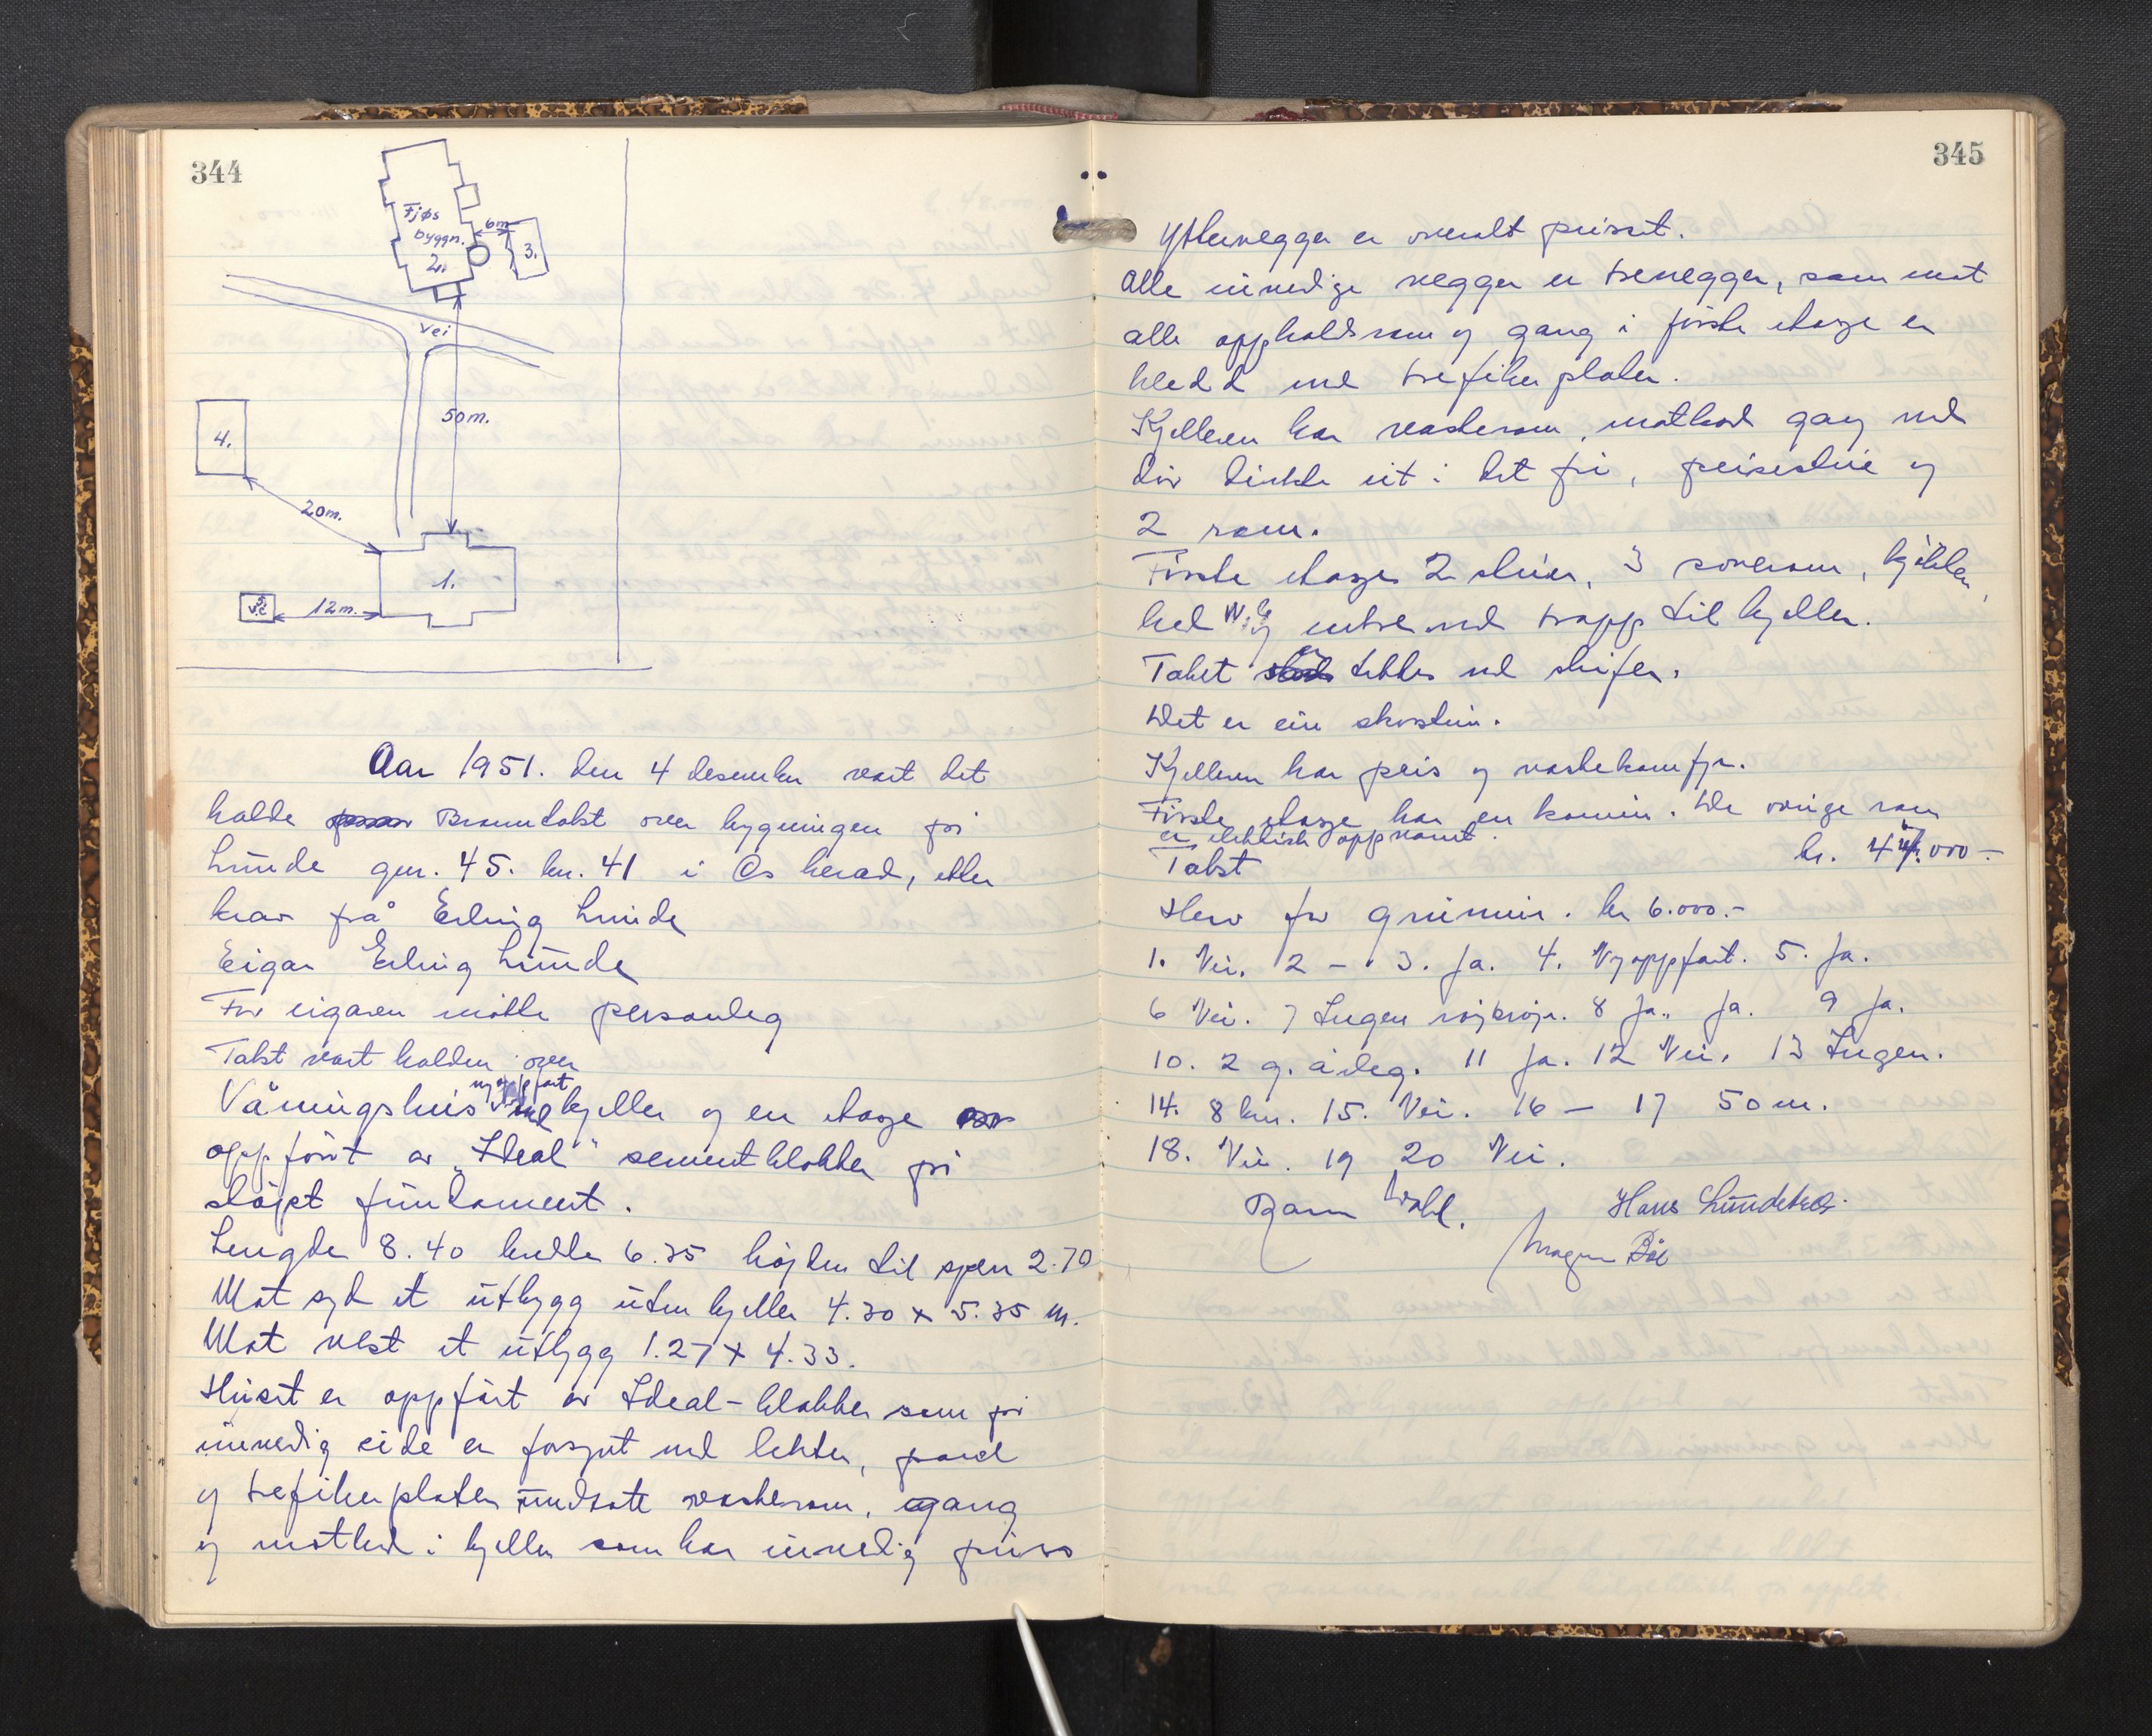 344
Fjøs
byggn.
2.
6m
3.
Vei
50m.
4.
20m.
1.
12m.
Aar 1951. den 4 desember vart det
halde Branntakst over bygningen på
Lunde gnr. 45. bn. 41 i Os herad, etter
krav frå Erling Lunde
Eigar Erling Lunde
For eigaren møtte personleg
Takst vart halden over
nyoppført
Våningshus med kjeller og en etasje
oppført av "Ideal" sementblokker på
støpt fundament.
Lengde 8.40 bredde 6.35 højden til sperr 2.70
Mot syd et utbygg uten kjeller 4.30 x 5.35 m.
Mot vest et utbygg 1.27 x 4.33.
Huset er oppført av Ideal-blokker som på
innvedig side er forsynt med lekter, papp
og trefiberplater undtatt vaskerom, gang
og matbod i kjeller som har innvedig puss
345
Yttervegger er overalt pusset.
Alle invedige vegger er trevegger, som mot
alle oppholdsrom og gang i første etasje er
kledd med trefiberplater.
Kjelleren har vaskerom, matbod gang med
dør direkte ut i det fri, peisestue og
2 rom.
Første etasje 2 stuer, 3 soverom, kjøkken,
bad W.C. og entre med trapp til kjeller.
Taket er tekket med skifer.
Det er ein skorstein.
Kjelleren har peis og vaskekomfyr.
Første etasje har en kamin. De øvrige rom
er elektrisk oppvarmt.
Takst kr. 44.000-
Herav for grunnmur. kr 6.000.-
1. Nei. 2 - 3. Ja. 4. Nyoppført. 5. Ja.
6 Nei. 7 Ingen 8 Ja. Ja. 9 Ja.
10. 2 g. årleg. 11 Ja. 12 Nei. 13 Ingen.
14. 8 km. 15. Nei. 16 - 17 50 m.
18. Nei. 19 20 Nei.
Hans Lundetræ.
Magnus Bøe